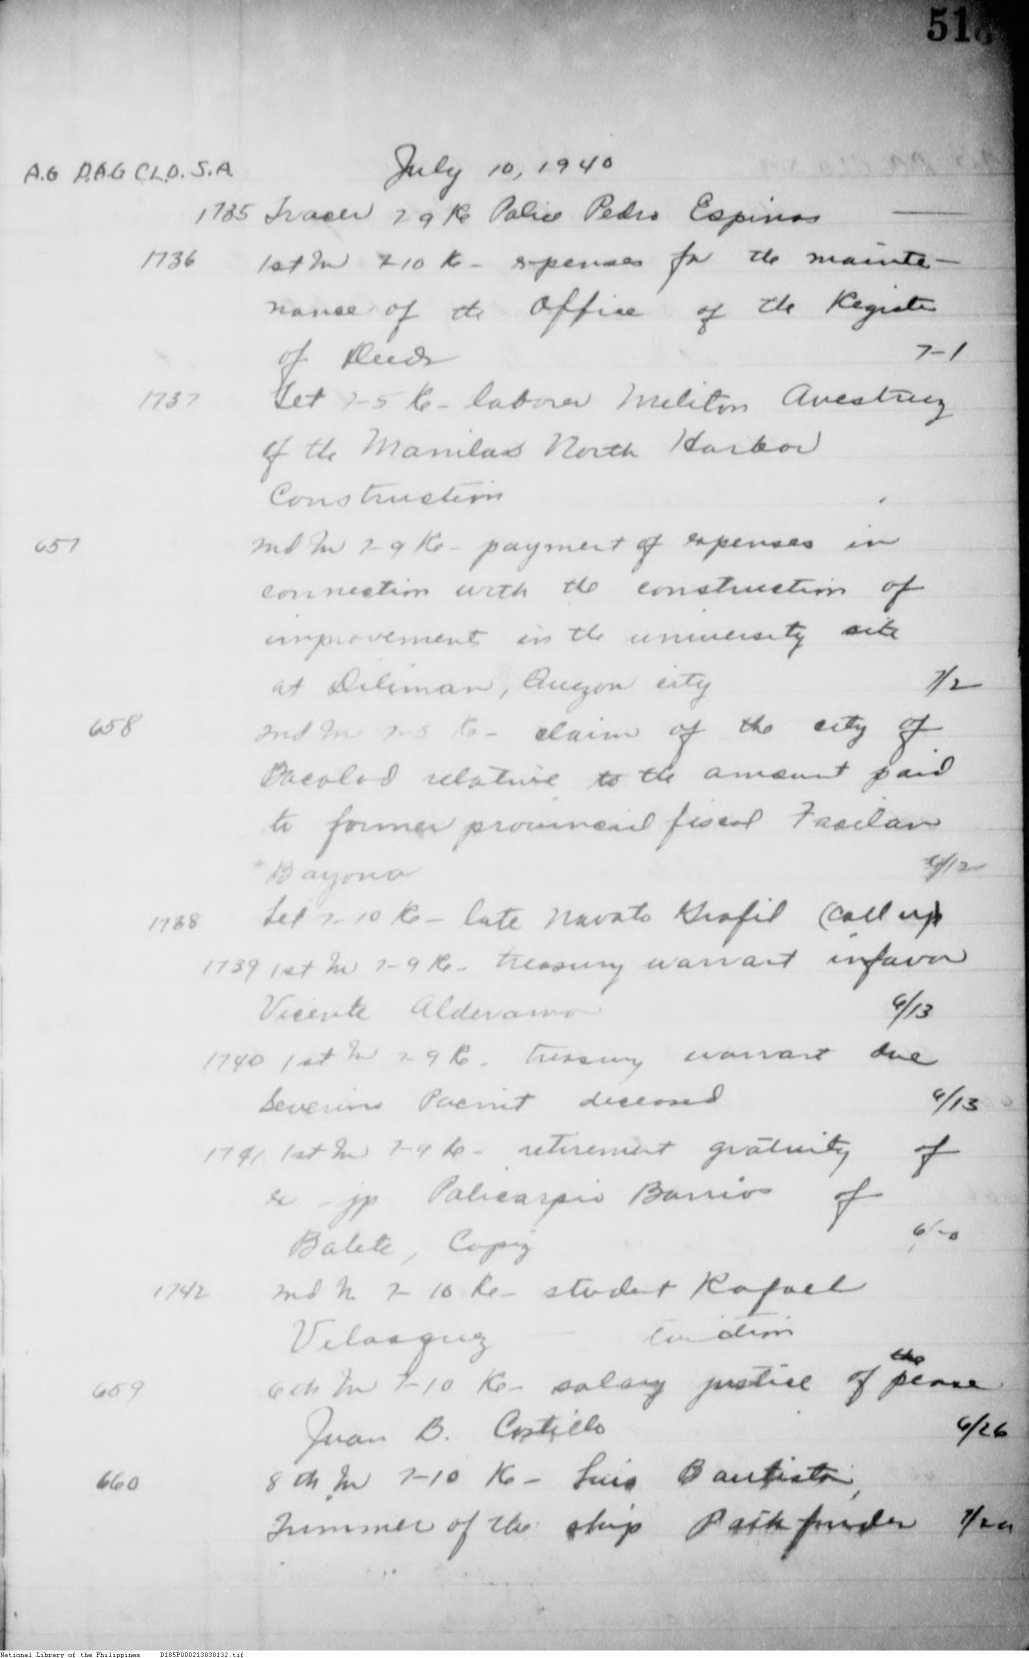 51
A.G D.A.G CL.D. S.A.
July 10, 1940
1735 Tracer 7-9 Re Police Pedro Espinas
1736 1st In 7-10 Re - expenses for the mainte-
nance of the Office of the Register
of Deeds 7-1
1737 Let 7-5 Re - laborer Meliton Avestruz
of the Manilas North Harbor
Construction
657 md In 7-9 Re - payment of expenses in
connection with the construction of
improvement in the university site
at Diliman, Quezon city 7/2
658 md In 7-5 Re - claim of the city of
Bacolod relative to the amount paid
to former provincial fiscal
Bayona 6/12
1738 Let 7-10 Re - late (call up)
1739 1st In 7-9 Re - treasury warrant in favor
Vicente 6/13
1740 1st In 7-9 Re - treasury warrant due
Severino deceased 6/13
1741 1st In 7-9 Re - retirement gratuity of
ex - jp Policarpio Barrios of
Balete, Capiz
1742 md In 7-10 Re - student Rafael
Velasquez tuition
659 6th In 7-10 Re - salary justice of the peace
Juan B. Castillo 6/26
660 8th In 7-10 Re - Luis Bautista,
Trimmer of the ship Pathfinder
National Library of the Philippines D185P000213838132.tif